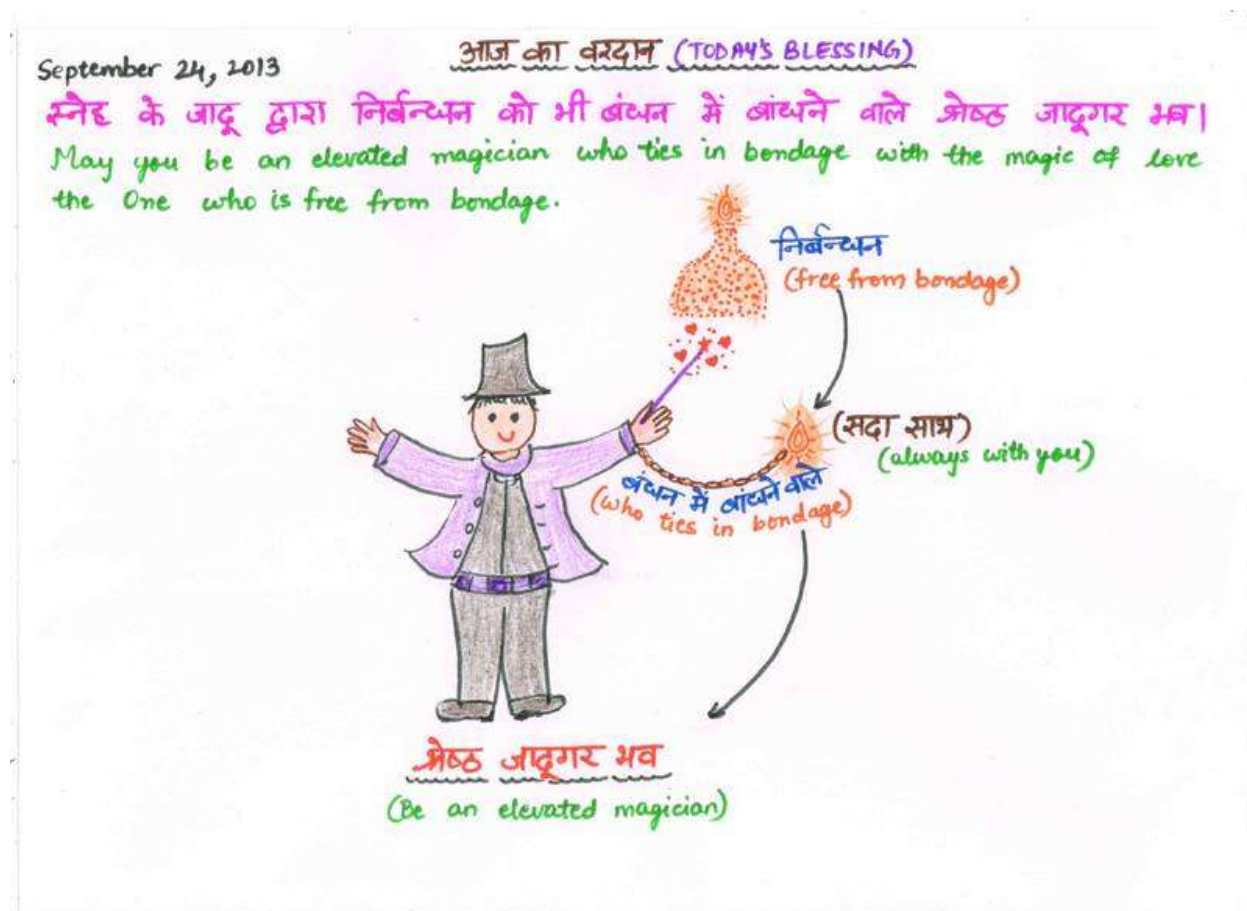 आज का वरदान (TODAY'S BLESSING)
September 24, 2013
स्नेह के जादू द्वारा निर्बन्धन को भी बंधन में बांधने वाले श्रेष्ठ जादूगर भव।
May you be an elevated magician who ties in bondage with the magic of love
the One who is free from bondage.
निर्बन्धन
(free from bondage)
(सदा साथ)
(always with you)
बंधन में बांधने वाले
(who ties in bondage)
श्रेष्ठ जादूगर भव
(Be an elevated magician)